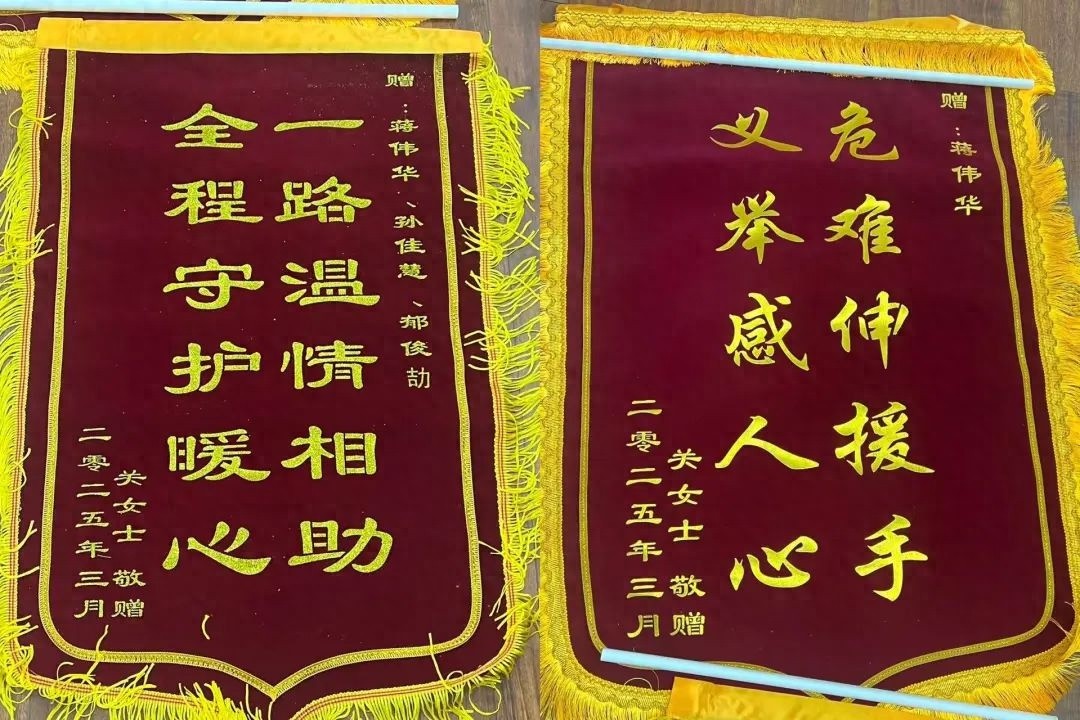 赠：蒋伟华、孙佳慧、郁俊劼
一路温情相助
全程守护暖心
关女士 敬赠
二零二五年三月
赠：蒋伟华
危难伸援手
义举感人心
关女士 敬赠
二零二五年三月